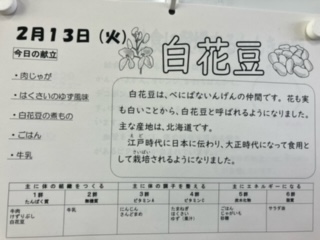 2月13日(火)
白花豆
今日の献立
・肉じゃが
・はくさいのゆず風味
・白花豆の煮もの
・ごはん
・牛乳
白花豆は、べにばないんげんの仲間です。花も実
も白いことから、白花豆と呼ばれるようになりました。
主な産地は、北海道です。
江戸時代に日本に伝わり、大正時代になって食用と
して栽培されるようになりました。
主に体の組織をつくる 主に体の調子を整える 主にエネルギーになる
1群 2群 3群 4群 5群 6群
たんぱく質 無機質 ビタミンA ビタミンC 炭水化物 脂質
牛肉 牛乳 にんじん たまねぎ ごはん サラダ油
けずりぶし さんどまめ はくさい じゃがいも
白花豆 ゆず 砂糖